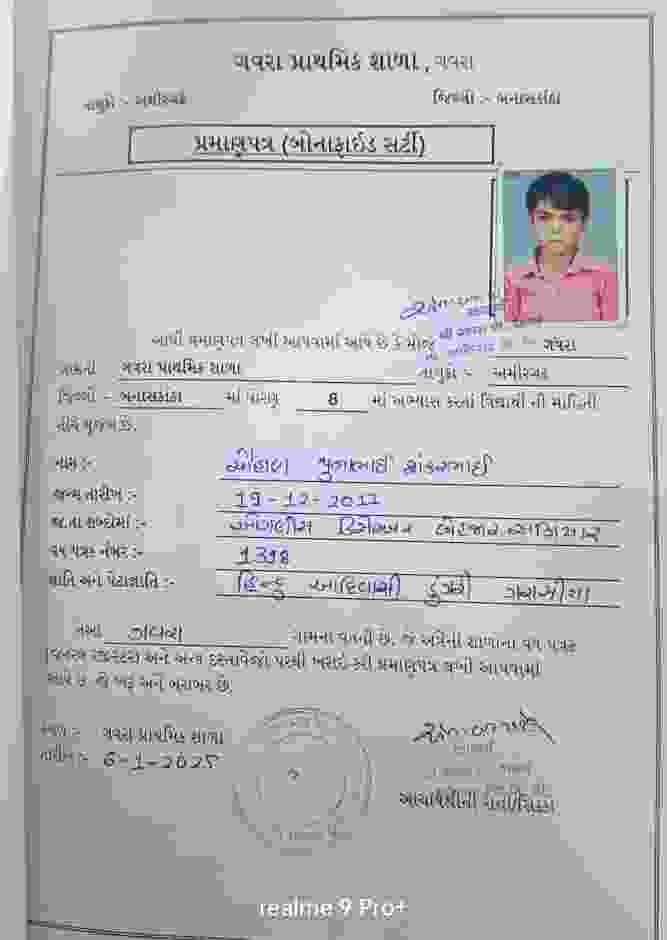 ગવરા પ્રાથમિક શાળા, ગવરા
તાલુકો :- અમીરગઢ જિલ્લો :- બનાસકાંઠા
પ્રમાણપત્ર (બોનાફાઈડ સર્ટી)
આથી પ્રમાણપત્ર લખી આપવામાં આવે છે કે મોજે ગવરા
ગામની ગવરા પ્રાથમિક શાળા તાલુકો :- અમીરગઢ
જિલ્લો :- બનાસકાંઠા માં ધોરણ 8 માં અભ્યાસ કરતાં વિદ્યાર્થી ની માહિતી
નીચે મુજબ છે.
નામ :- ચૌહાણ
જન્મ તારીખ :- 19-12-2011
જન્મ તારીખ શબ્દોમાં :- ઓગણીસ ડિસેમ્બર
વય પત્રક નંબર :- 1398
જાતિ અને પેટાજાતિ :- હિન્દુ આદિવાસી ડુંગરી ગરાસીયા
ગવરા ગામના વતની છે. જે અત્રેની શાળાના વય પત્રક
(જનરલ રજીસ્ટર) અને અન્ય દસ્તાવેજો પરથી ખરાઈ કરી પ્રમાણપત્ર લખી આપવામાં
આવે છે જે ખરું અને બરાબર છે.
સ્થળ :- ગવરા પ્રાથમિક શાળા
તારીખ :- 6-1-2025
આચાર્યશ્રીની સહી/સિક્કા
realme 9 Pro+